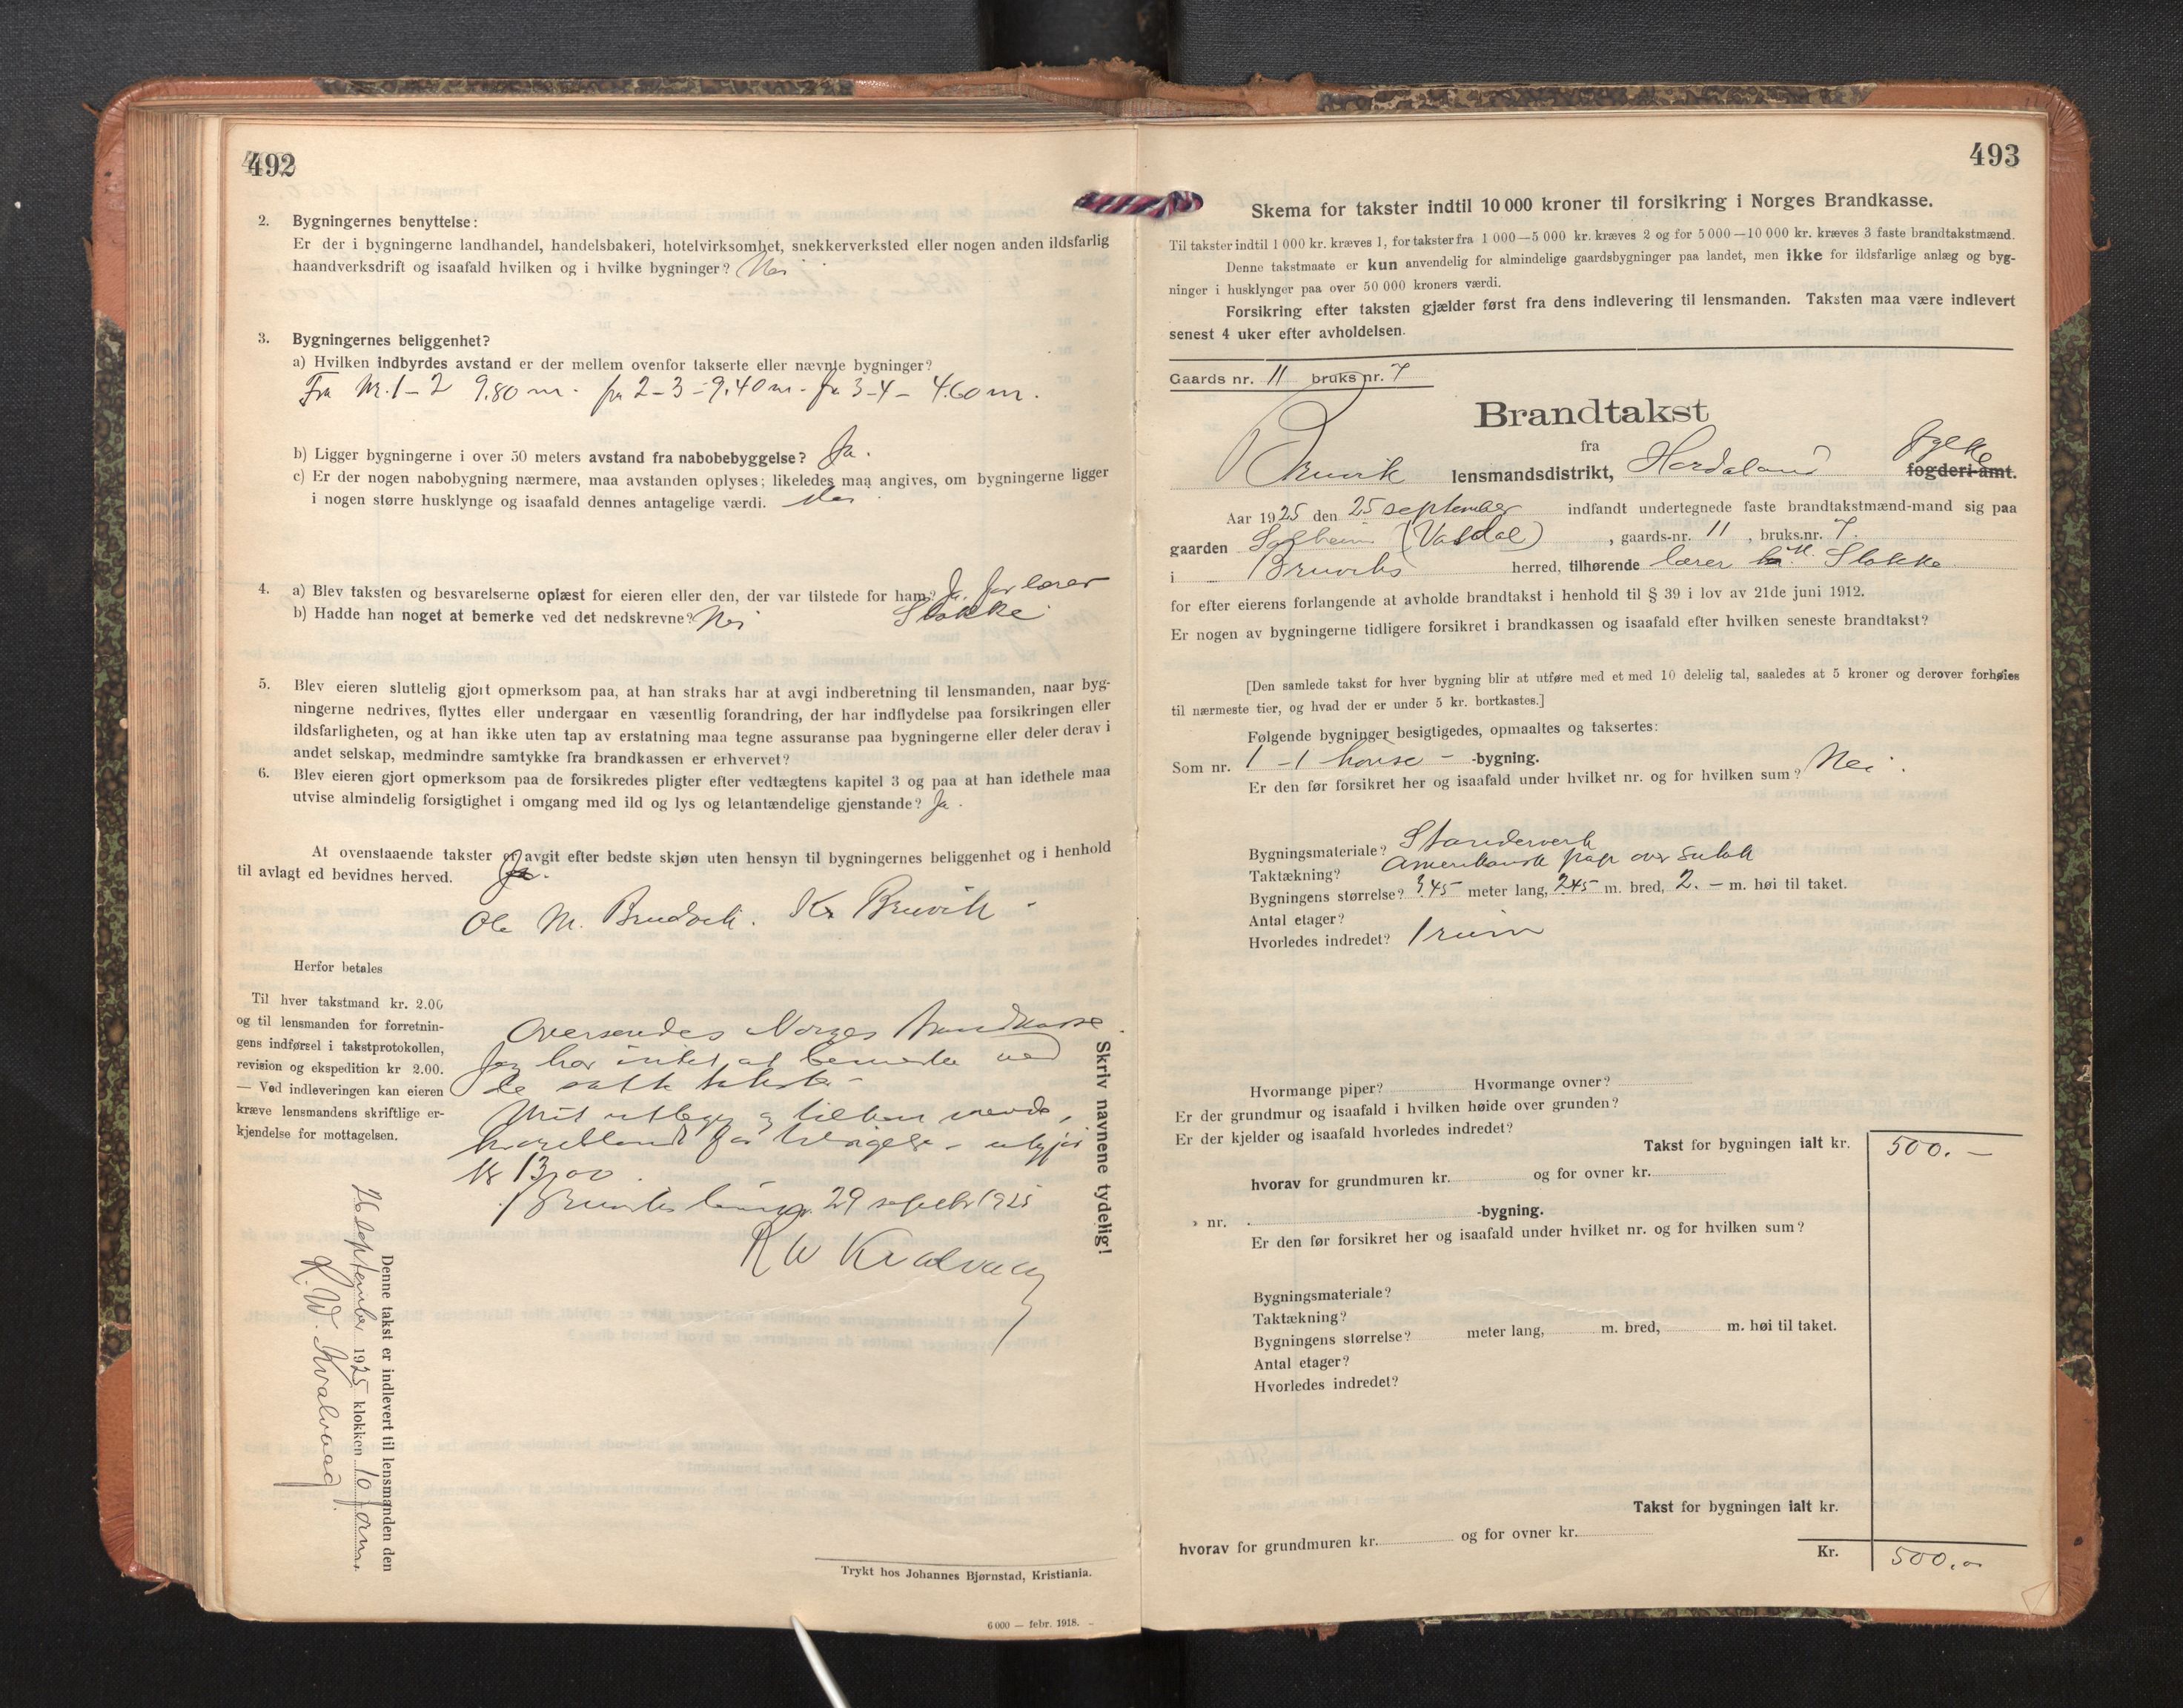 492
2. Bygningernes benyttelse:
Er der i bygningerne landhandel, handelsbakeri, hotelvirksomhet, snekkerverksted eller nogen anden ildsfarlig
haandverksdrift og isaafald hvilken og i hvilke bygninger? Nei
3. Bygningernes beliggenhet?
a) Hvilken indbyrdes avstand er der mellem ovenfor takserte eller nævnte bygninger?
Fra Nr. 1 - 2 9.80 m. fra 2 - 3 - 9.40 m. fra 3-4 - 4.60 m.
b) Ligger bygningerne i over 50 meters avstand fra nabobebyggelse? Ja.
c) Er der nogen nabobygning nærmere, maa avstanden oplyses; likeledes maa angives, om bygningerne ligger
i nogen større husklynge og isaafald dennes antagelige værdi. Nei
4. a) Blev taksten og besvarelserne oplæst for eieren eller den, der var tilstede for ham? Ja, for lærer
b) Hadde han noget at bemerke ved det nedskrevne? Nei Stokke
5. Blev eieren sluttelig gjort opmerksom paa, at han straks har at avgi indberetning til lensmanden, naar byg-
ningerne nedrives, flyttes eller undergaar en væsentlig forandring, der har indflydelse paa forsikringen eller
ildsfarligheten, og at han ikke uten tap av erstatning maa tegne assuranse paa bygningerne eller deler derav i
andet selskap, medmindre samtykke fra brandkassen er erhvervet?
6. Blev eieren gjort opmerksom paa de forsikredes pligter efter vedtægtens kapitel 3 og paa at han idethele maa
utvise almindelig forsigtighet i omgang med ild og lys og letantændelige gjenstande? Ja.
At ovenstaaende takster er avgit efter bedste skjøn uten hensyn til bygningernes beliggenhet og i henhold
til avlagt ed bevidnes herved. Ja.
Ole M. Brudvik. Kr Bruvik
Herfor betales
Til hver takstmand kr. 2.00
og til lensmanden for forretnin-
gens indførsel i takstprotokollen,
revision og ekspedition kr 2.00.
— Ved indleveringen kan eieren
kræve lensmandens skriftlige er-
kjendelse for mottagelsen.
Oversendes Norges Brandkasse.
Jeg har intet at bemerke ved
de satte takster -
Mit utlegg og
kr 13,00
29 septbr 1925
R W Kvalvaag
Skriv navnene tydelig!
Denne takst er indlevert til lensmanden den
26 september 1925 klokken 10 form.
R. W. Kvalvaag.
Trykt hos Johannes Bjørnstad, Kristiania.
6 000 — febr. 1918.
493
Skema for takster indtil 10 000 kroner til forsikring i Norges Brandkasse.
Til takster indtil 1 000 kr. kræves 1, for takster fra 1 000—5 000 kr. kræves 2 og for 5 000—10 000 kr. kræves 3 faste brandtakstmænd.
Denne takstmaate er kun anvendelig for almindelige gaardsbygninger paa landet, men ikke for ildsfarlige anlæg og byg-
ninger i husklynger paa over 50 000 kroners værdi.
Forsikring efter taksten gjælder først fra dens indlevering til lensmanden. Taksten maa være indlevert
senest 4 uker efter avholdelsen.
Gaards nr. 11 bruks nr. 7
Brandtakst
fra
Bruvik lensmandsdistrikt, Hordaland fylke fogderi-amt.
Aar 1925 den 25 september indfandt undertegnede faste brandtakstmænd-mand sig paa
gaarden Solheim (Vasdal), gaards-nr. 11, bruks.nr. 7.
i Bruviks herred, tilhørende lærer Stokke
for efter eierens forlangende at avholde brandtakst i henhold til § 39 i lov av 21de juni 1912.
Er nogen av bygningerne tidligere forsikret i brandkassen og isaafald efter hvilken seneste brandtakst?
[Den samlede takst for hver bygning blir at utføre med et med 10 delelig tal, saaledes at 5 kroner og derover forhøies
til nærmeste tier, og hvad der er under 5 kr. bortkastes.]
Følgende bygninger besigtigedes, opmaaltes og taksertes:
Som nr. 1 - 1 hønse - -bygning.
Er den før forsikret her og isaafald under hvilket nr. og for hvilken sum? Nei.
Bygningsmateriale? Standerverk
Taktækning? Amerikansk pap over sutak
Bygningens størrelse? 345 meter lang, 245 m. bred, 2. - m. høi til taket.
Antal etager?
Hvorledes indredet? 1 rum
Hvormange piper? Hvormange ovner?
Er der grundmur og isaafald i hvilken høide over grunden?
Er der kjelder og isaafald hvorledes indredet?
Takst for bygningen ialt kr. 500. -
hvorav for grundmuren kr. og for ovner kr.
» nr. -bygning.
Er den før forsikret her og isaafald under hvilket nr. og for hvilken sum?
Bygningsmateriale?
Taktækning?
Bygningens størrelse? meter lang, m. bred, m. høi til taket.
Antal etager?
Hvorledes indredet?
Takst for bygningen ialt kr.
hvorav for grundmuren kr. og for ovner kr.
Kr. 500.00